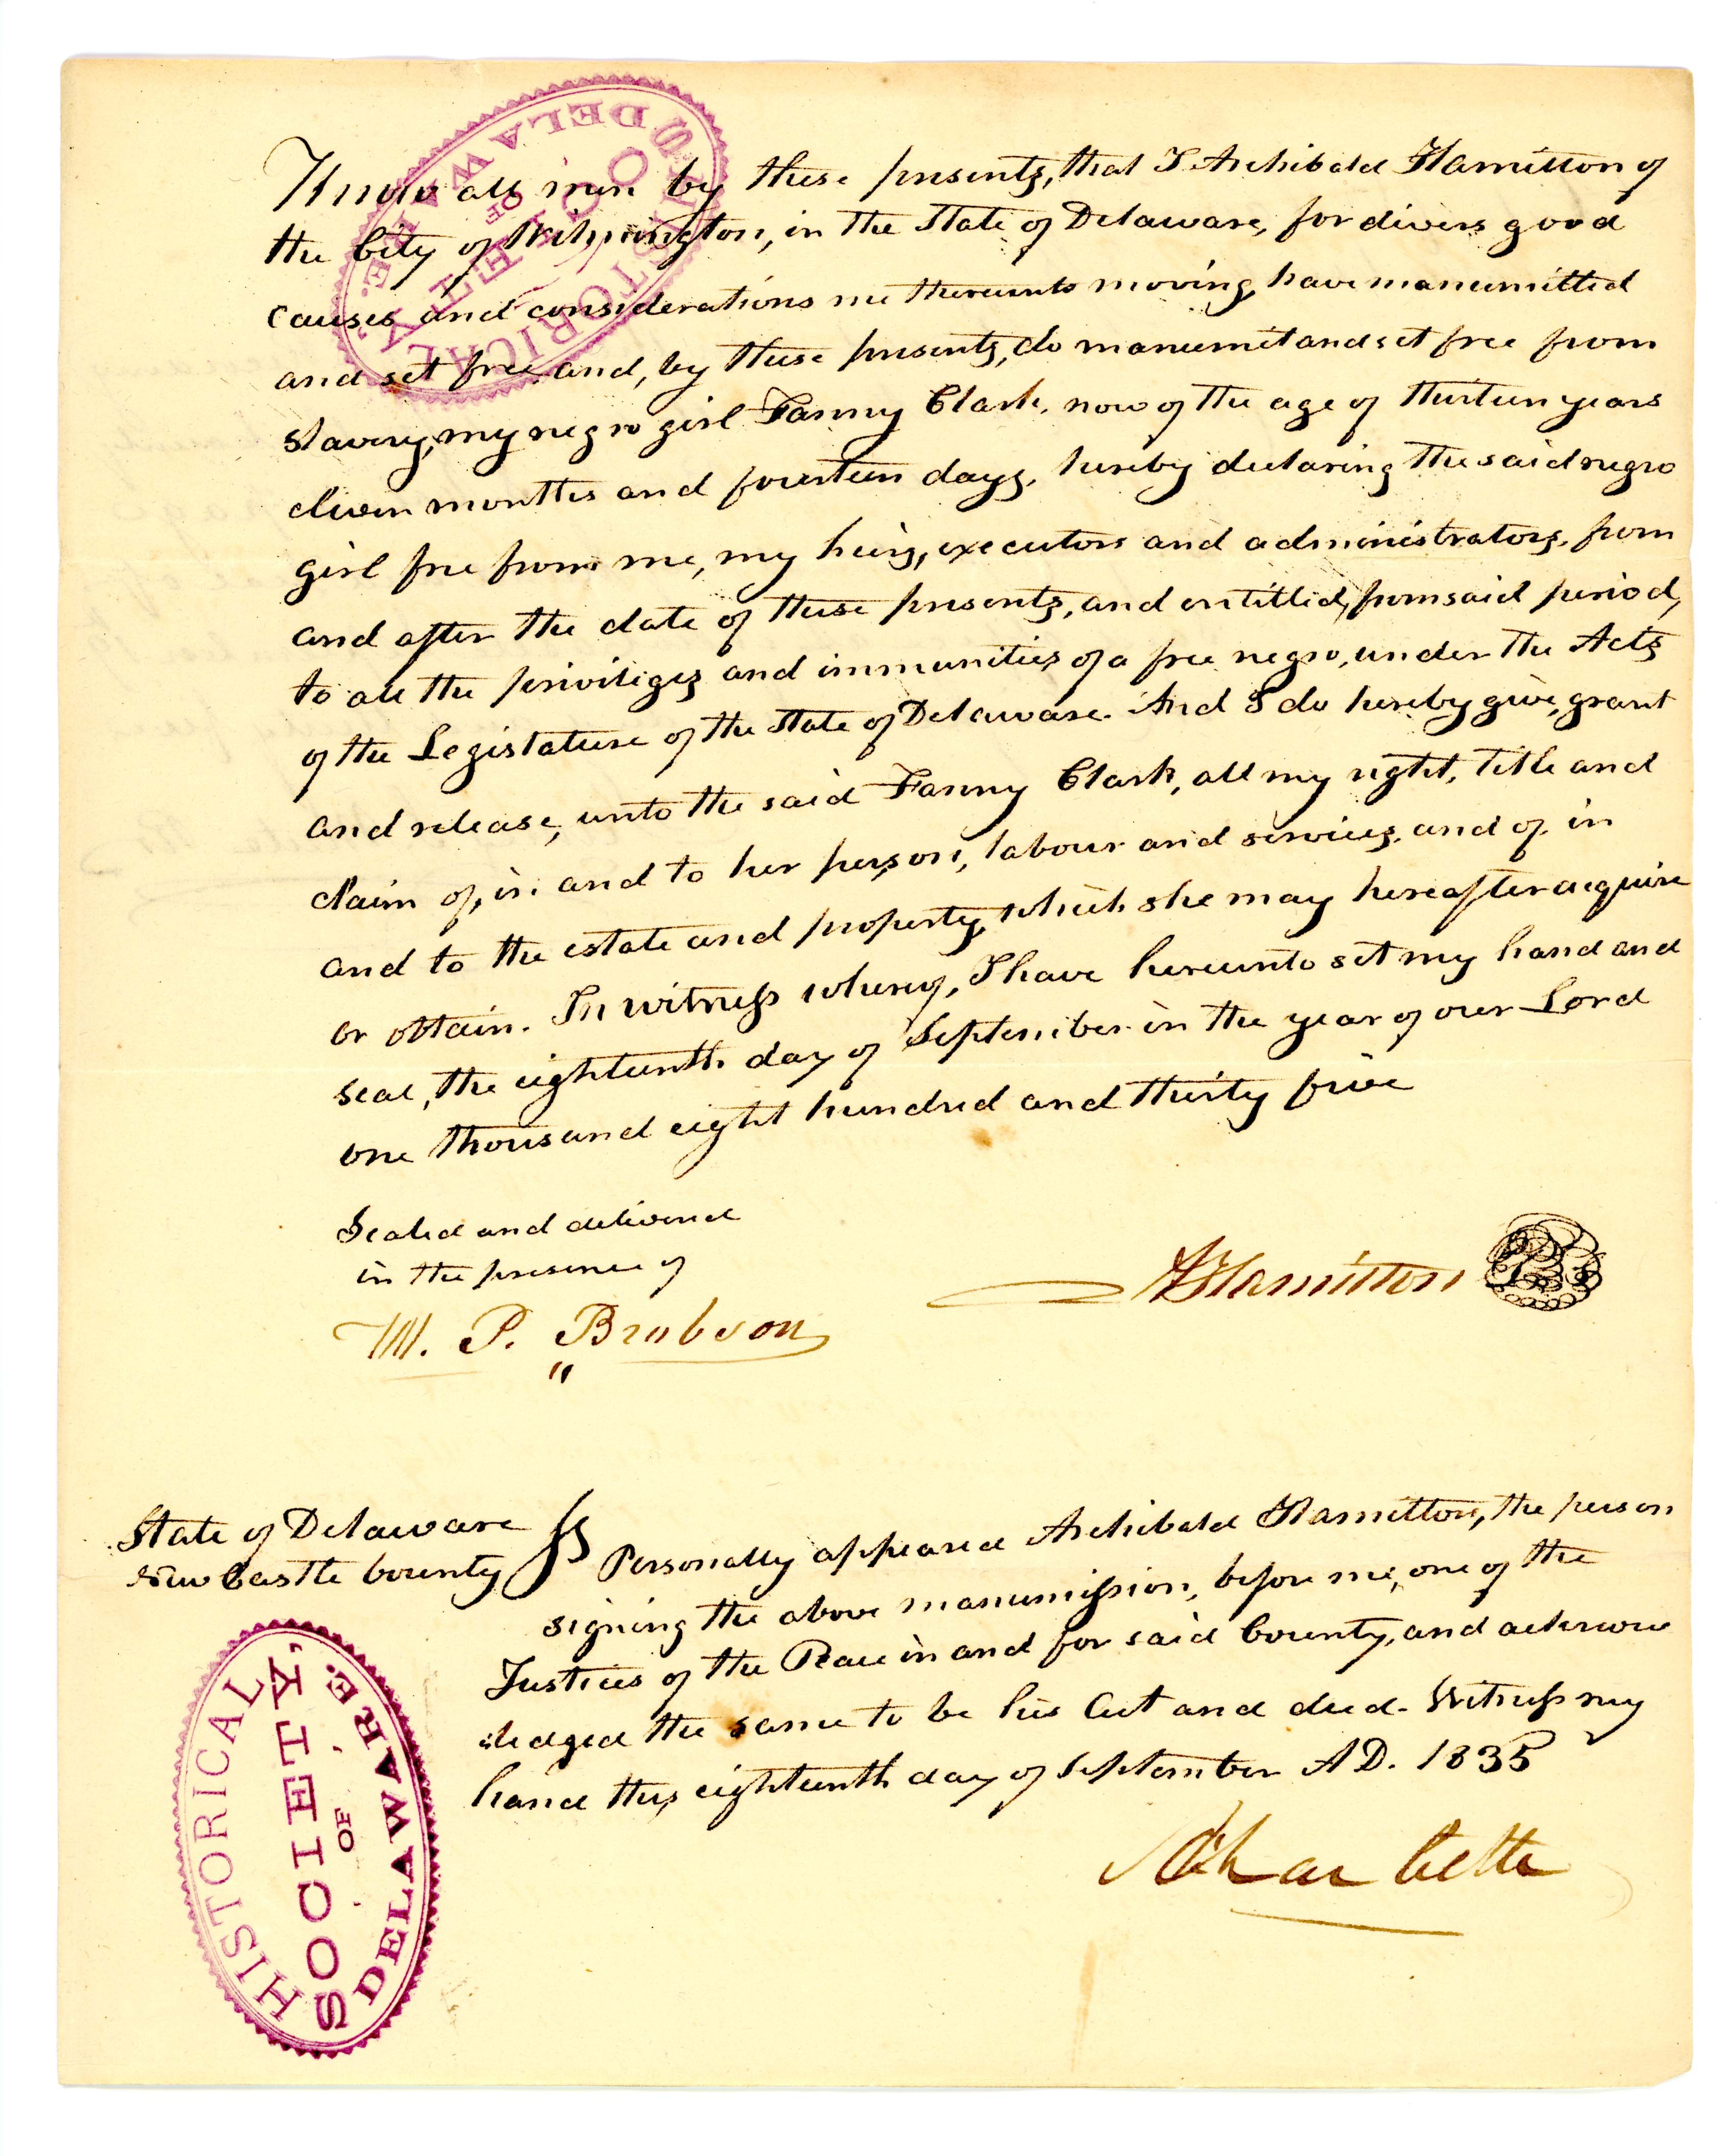 Know all men by these presents, that I Archibald Hamilton of
the City of Wilmington, in the State of Delaware, for divers good
causes and considerations me thereunto moving, have manumitted
and set free, and, by these presents, do manumit and set free from
slavery, my negro girl Fanny Clark, now of the age of thirteen years
eleven months and fourteen days, hereby declaring the said negro
girl free from me, my heirs, executors and administrators, from
and after the date of these presents, and entitled, from said period,
to all the priviliges and immunities of a free negro, under the Acts
of the Legislature of the State of Delaware. And I do hereby give, grant
and release, unto the said Fanny Clark, all my right, title and
claim of, in and to her person, labour and services, and of, in
and to the estate and property, which she may hereafter acquire
or obtain. In witness whereof, I have hereunto set my hand and
seal, the eighteenth day of September in the year of our Lord
one thousand eight hundred and thirty five
Sealed and delivered
in the presence of
M. P. Brobson
AHamilton
State of Delaware
New Castle County ss Personally appeared Archibald Hamilton, the person
signing the above manumission, before me, one of the
Justices of the Peace in and for said County, and acknow
ledged the same to be his Act and deed. Witness my
hand this eighteenth day of September A D. 1835
HISTORICAL
SOCIETY.
OF
DELAWARE.
HISTORICAL
SOCIETY
OF
DELAWARE.